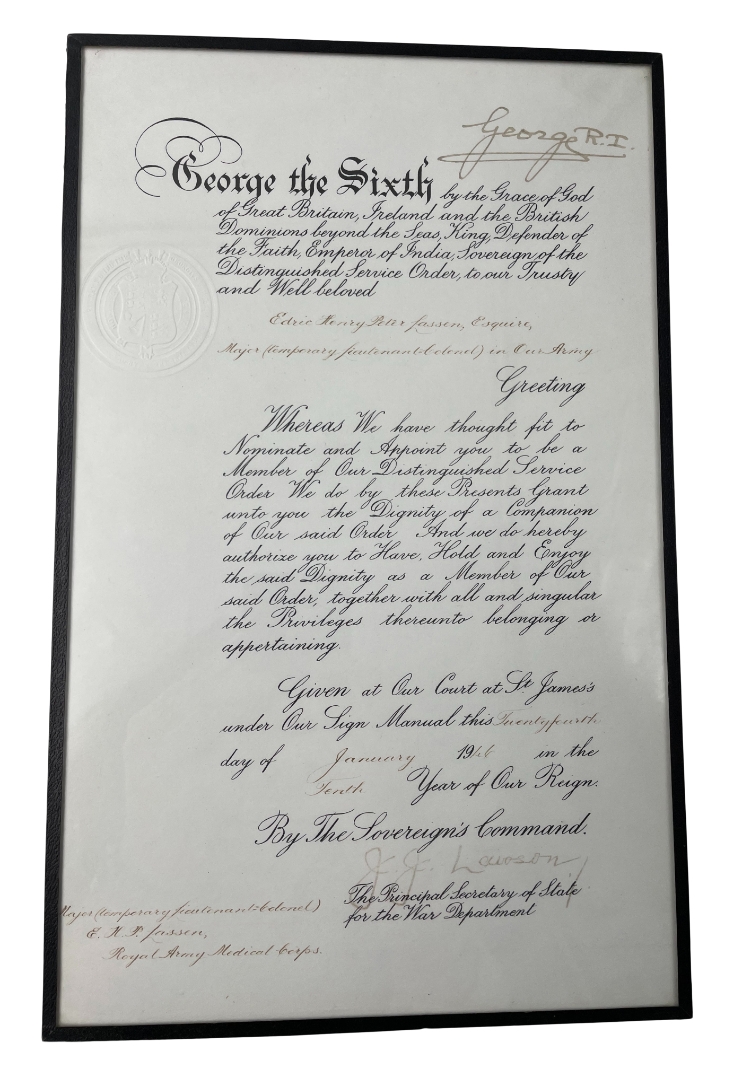 George R.I.
George the Sixth by the Grace of God
of Great Britain, Ireland and the British
Dominions beyond the Seas, King, Defender of
the Faith, Emperor of India, Sovereign of the
Distinguished Service Order, to our Trusty
and Well beloved
Edric Henry Peter Lassen, Esquire,
Major (temporary Lieutenant-Colonel) in Our Army
Greeting
Whereas We have thought fit to
Nominate and Appoint you to be a
Member of Our Distinguished Service
Order We do by these Presents Grant
unto you the Dignity of a Companion
of Our said Order And we do hereby
authorize you to Have, Hold and Enjoy
the said Dignity as a Member of Our
said Order, together with all and singular
the Privileges thereunto belonging or
appertaining.
Given at Our Court at St. James's
under Our Sign Manual this Twenty fourth
day of January 1946 in the
Tenth Year of Our Reign.
By The Sovereign's Command.
J. J. Lawson
The Principal Secretary of State
for the War Department
Major (temporary Lieutenant-Colonel)
E. H. P. Lassen,
Royal Army Medical Corps.